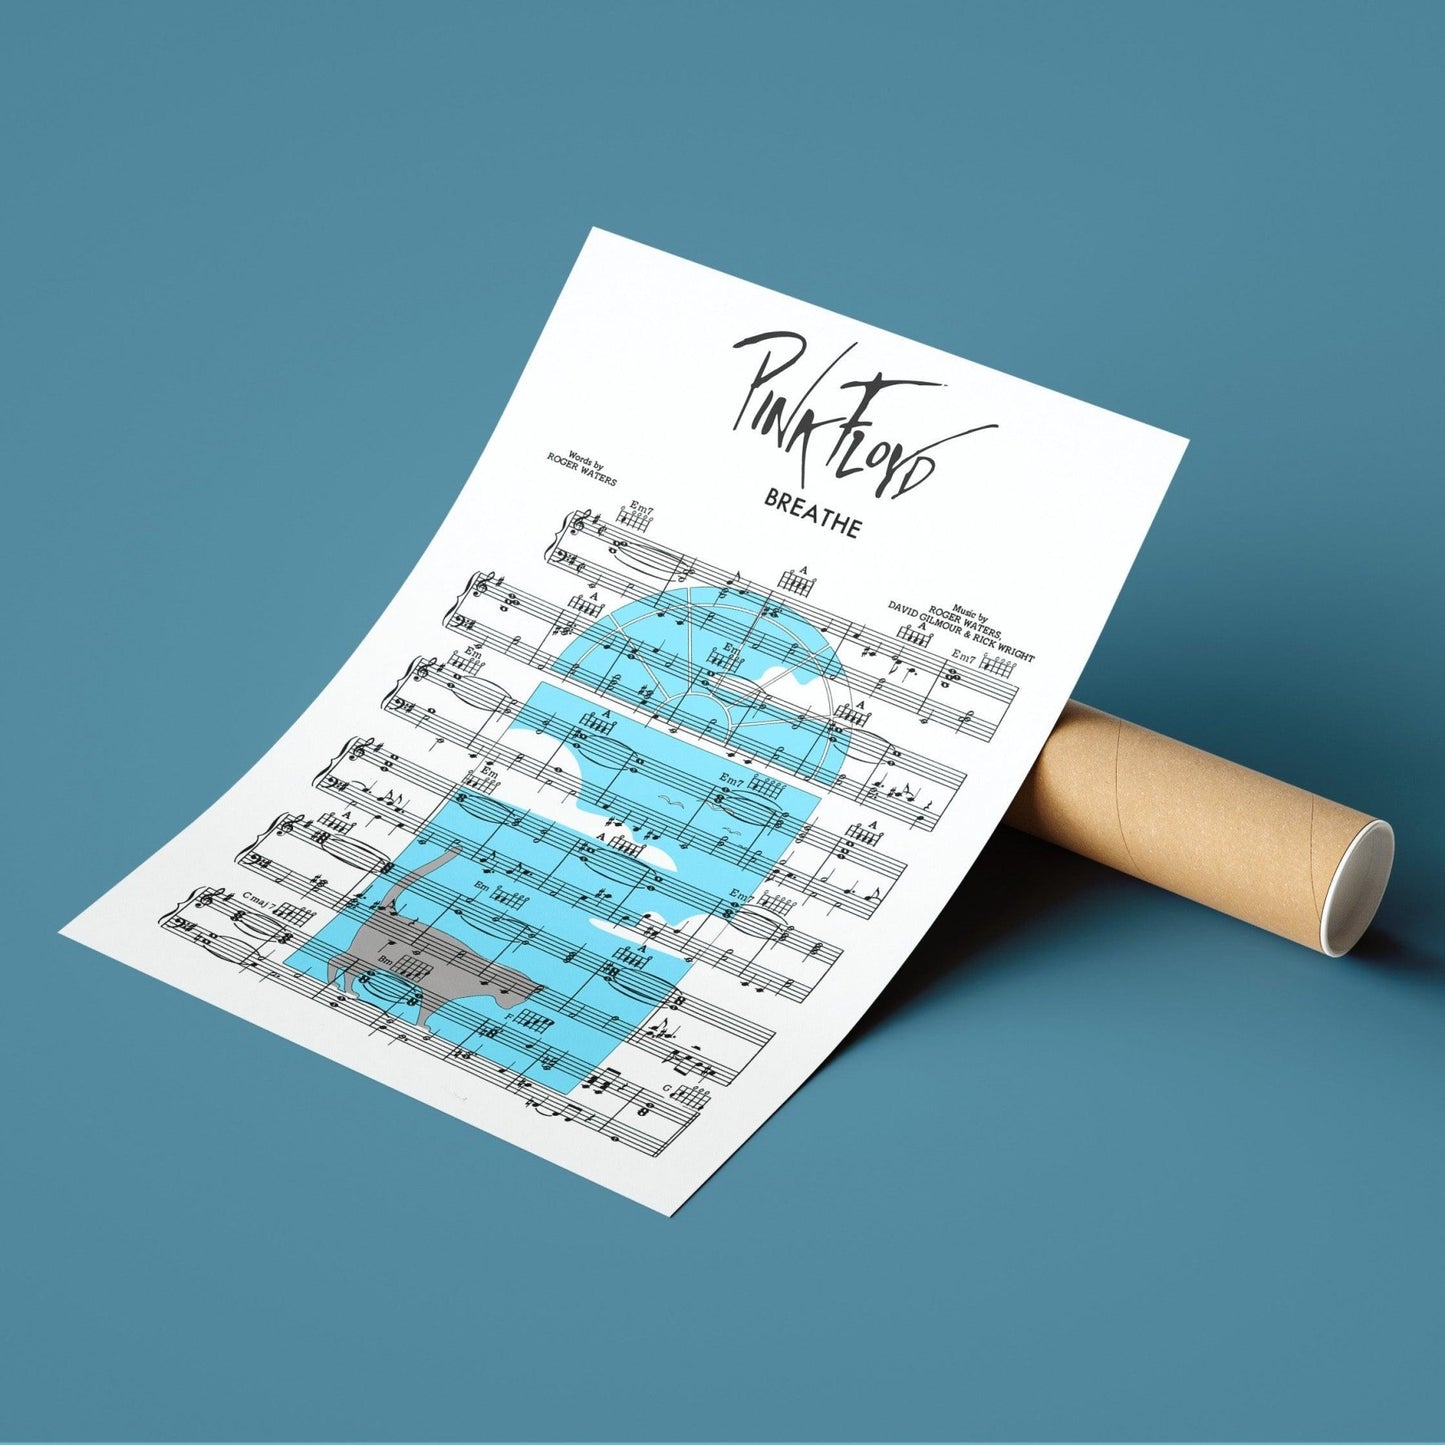 PINK FLOYD
BREATHE
Words by
ROGER WATERS
Music by
ROGER WATERS,
DAVID GILMOUR & RICK WRIGHT
Em7
A
A
Em7
A
Em
A
Em
A
Em7
A
Em
A
Em7
A
Em
A
Cmaj7
Bm
F
G